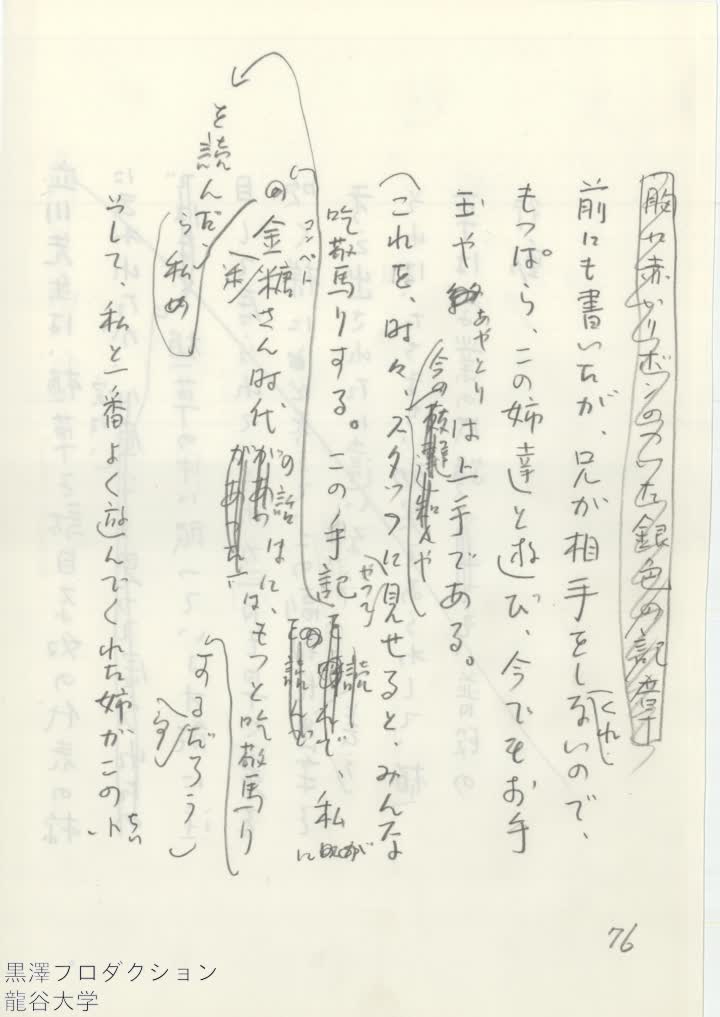 胸に赤いリボンのついた銀色の記章
前にも書いたが、兄が相手をしてくれないので、
もっぱら、この姉達と遊び、今でもお手
玉やあやとりは上手である。
(これを、時々、スタッフにやって見せると、みんな
吃驚りする。この手記
の金米糖さん時代の話には、もっと吃驚り
コンペト
するだろう)
を読んだら
私め
そして、私と一番よく遊んでくれた姉がこの小
ちい
76
黒澤プロダクション
龍谷大学